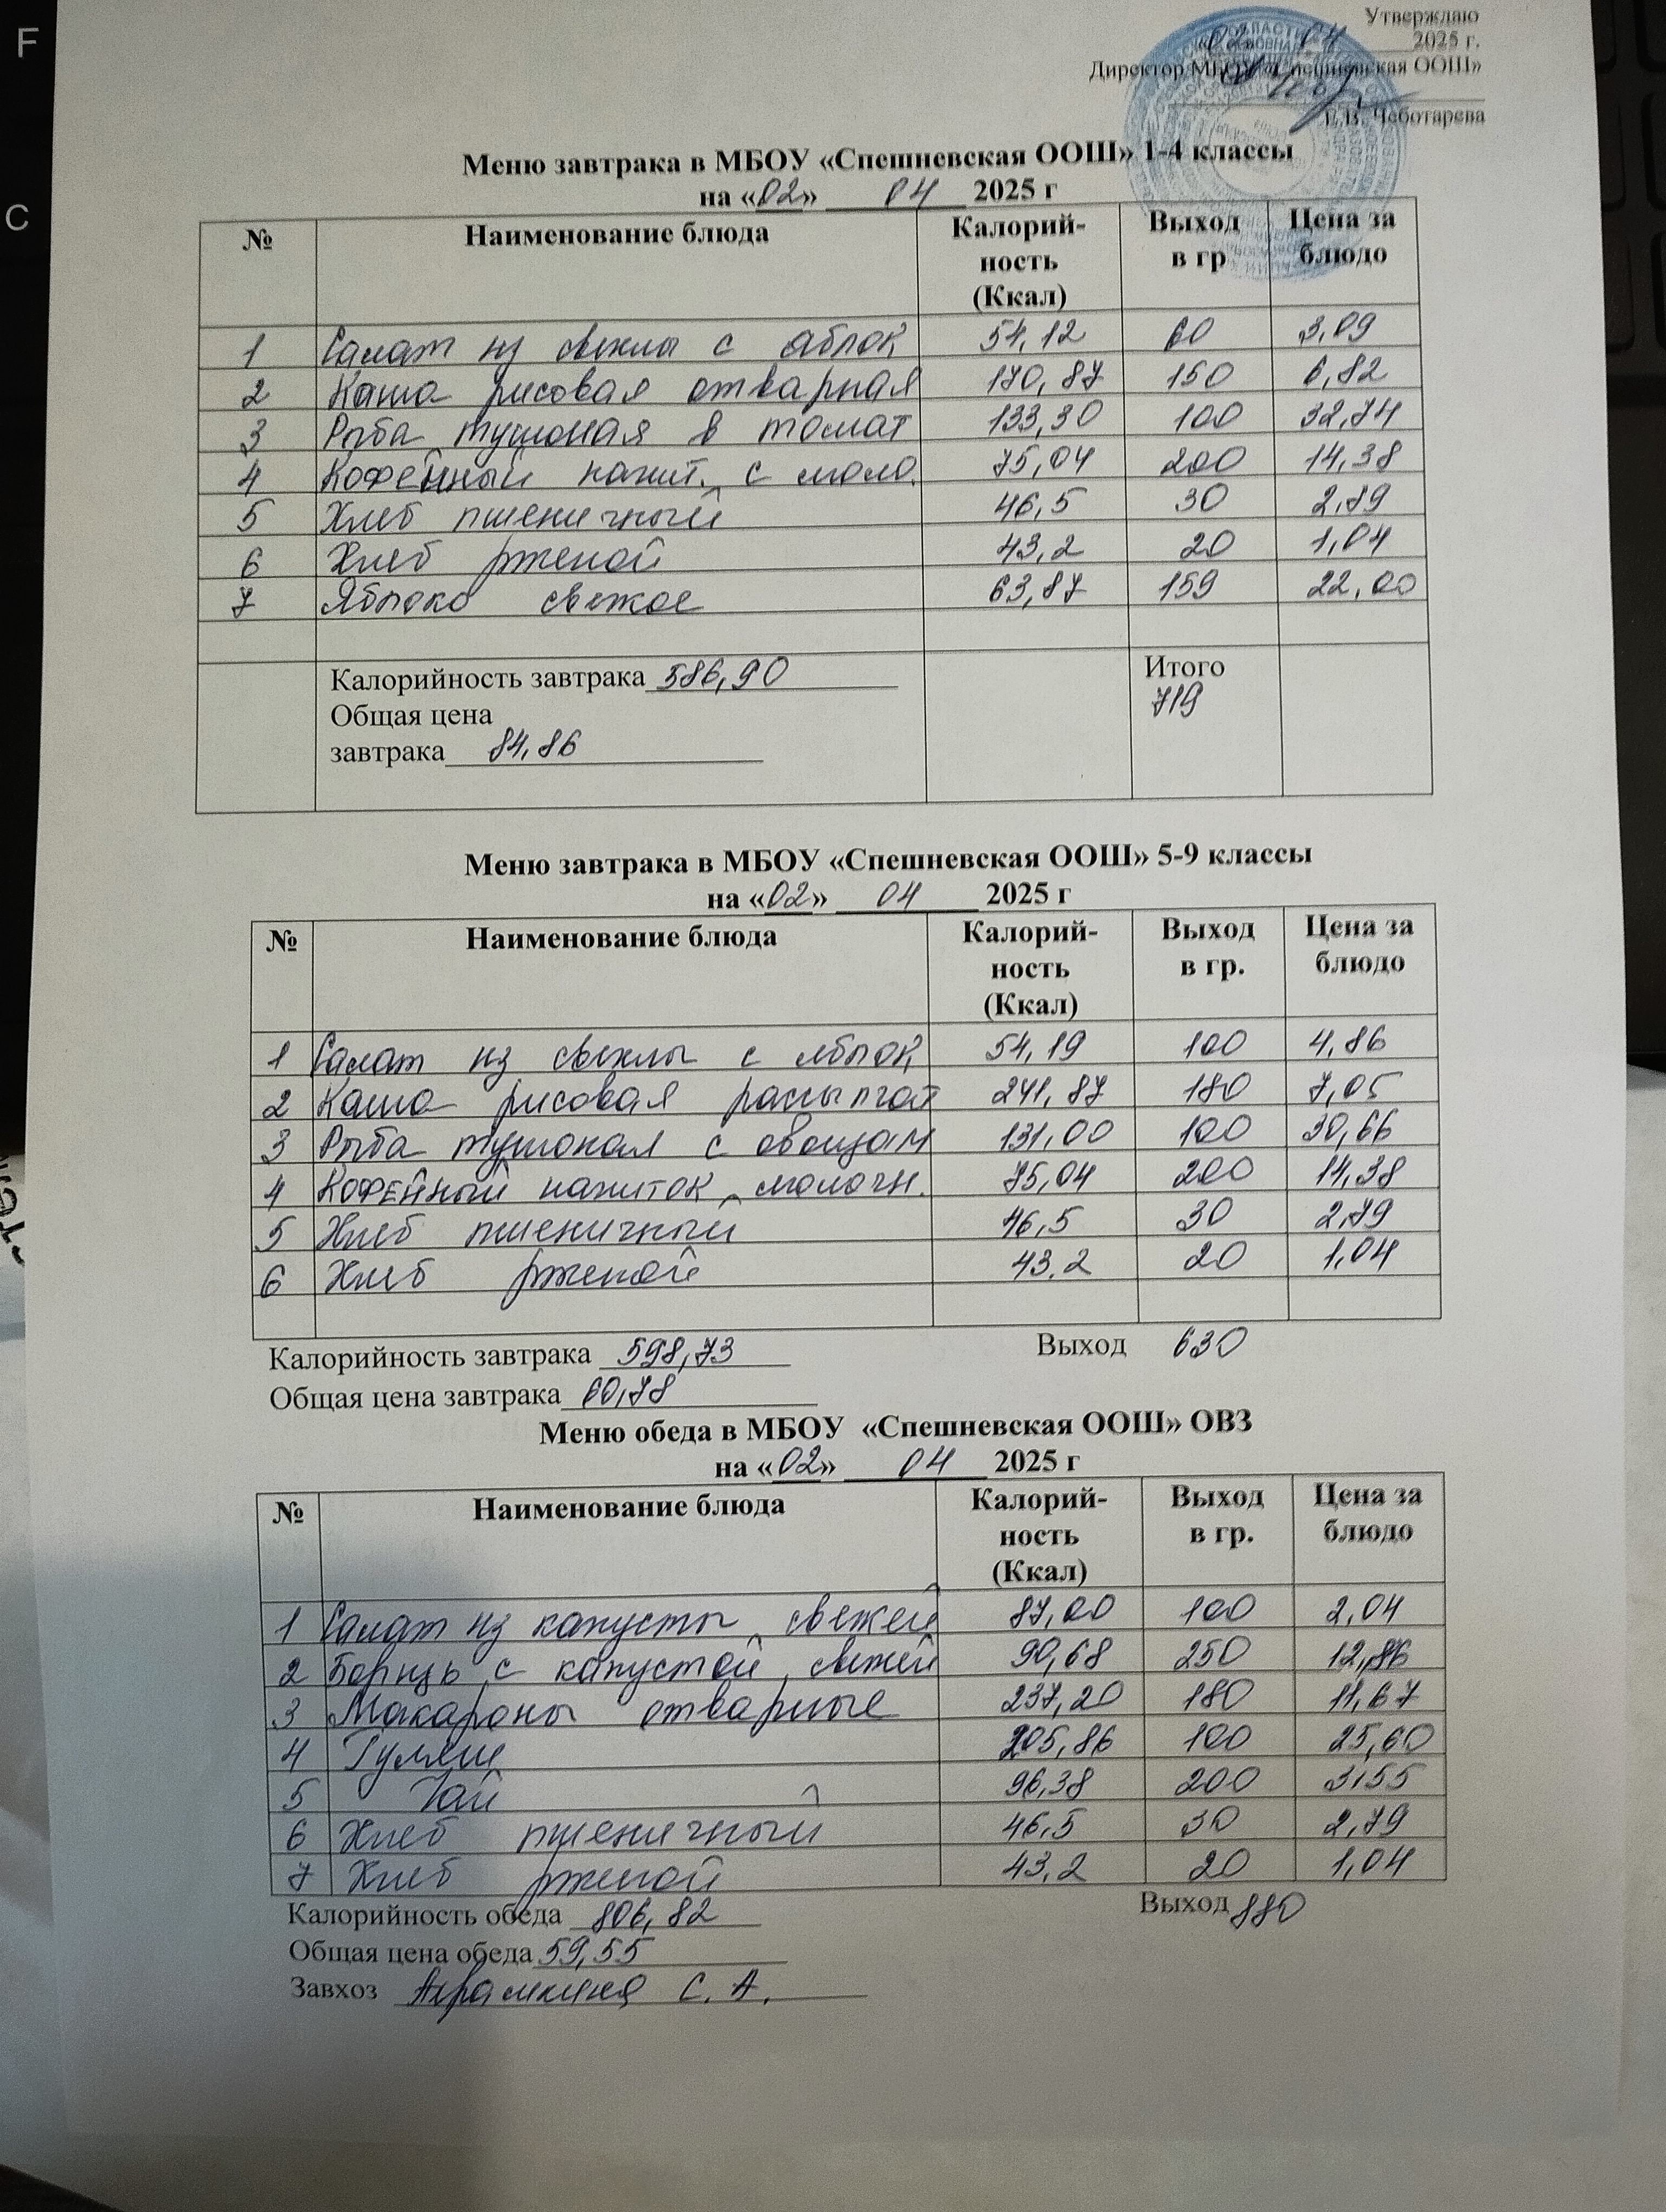 Утверждаю
«02» 04 2025 г.
Директор МБОУ «Спешневская ООШ»
Е.В. Чеботарева
Меню завтрака в МБОУ «Спешневская ООШ» 1-4 классы
на «02» 04 2025 г
№ Наименование блюда Калорий-ность (Ккал) Выход в гр Цена за блюдо
1 Салат из свеклы с яблок 54,12 60 3,09
2 Каша рисовая отварная 170,87 150 6,82
3 Рыба тушоная в томат 133,30 100 32,74
4 Кофейный напит. с моло. 75,04 200 14,38
5 Хлеб пшеничный 46,5 30 2,79
6 Хлеб рженой 43,2 20 1,04
7 Яблоко свежое 63,87 159 22,00
Калорийность завтрака 586,90 Итого
Общая цена 719
завтрака 84,86
Меню завтрака в МБОУ «Спешневская ООШ» 5-9 классы
на «02» 04 2025 г
№ Наименование блюда Калорий-ность (Ккал) Выход в гр. Цена за блюдо
1 Салат из свеклы с яблок 54,19 100 4,86
2 Каша рисовая рассыпчат 241,87 180 7,05
3 Рыба тушоная с овощам 131,00 100 30,66
4 Кофейный напиток молочн. 75,04 200 14,38
5 Хлеб пшеничный 46,5 30 2,79
6 Хлеб рженой 43,2 20 1,04
Калорийность завтрака 598,73 Выход 630
Общая цена завтрака 60,78
Меню обеда в МБОУ «Спешневская ООШ» ОВЗ
на «02» 04 2025 г
№ Наименование блюда Калорий-ность (Ккал) Выход в гр. Цена за блюдо
1 Салат из капусты свежей 87,00 100 2,04
2 Борщь с капустой свежей 90,68 250 12,86
3 Макароны отварные 237,20 180 11,67
4 Гуляш 205,86 100 25,60
5 Чай 96,38 200 3,55
6 Хлеб пшеничный 46,5 30 2,79
7 Хлеб рженой 43,2 20 1,04
Калорийность обеда 806,82 Выход 880
Общая цена обеда 59,55
Завхоз С. А.
F
C